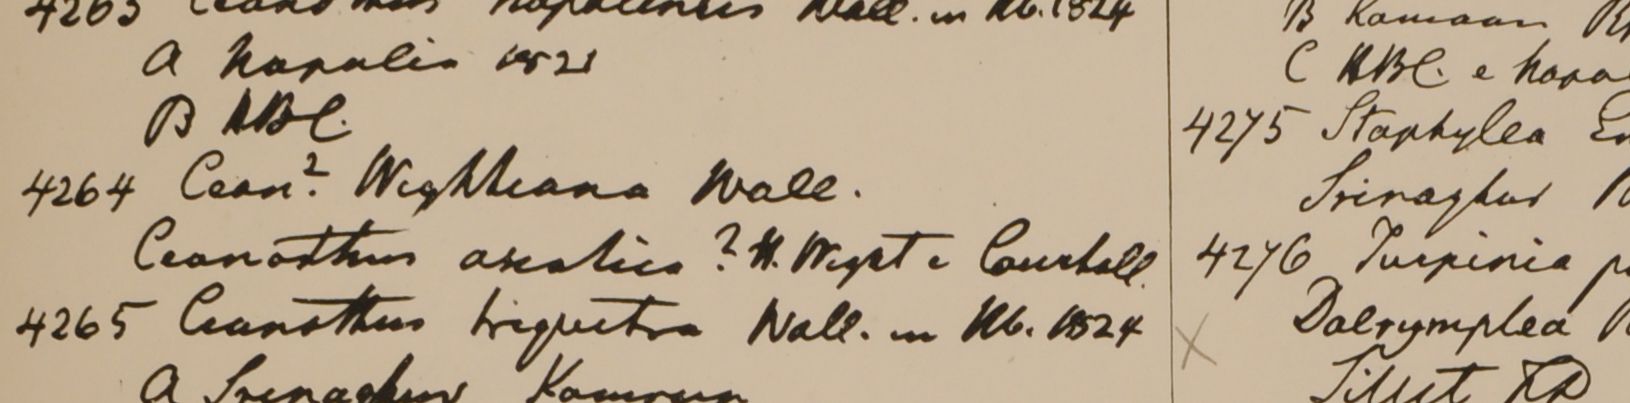 4263 Ceanothus napalensis Wall. in Hb. 1824
A Napalia 1821
B HBC.
4264 Cean? Wightiana Wall.
Ceanothus asiatica? H. Wight e Courtall.
4265 Ceanothus triquetra Wall. in Hb. 1824
A Srinaghur Kamaun
B Kamaon
C HBC. e Napa
4275 Staphylea Em
Srinaghur
4276 Turpinia p
Dalrymplea
Sillet FD